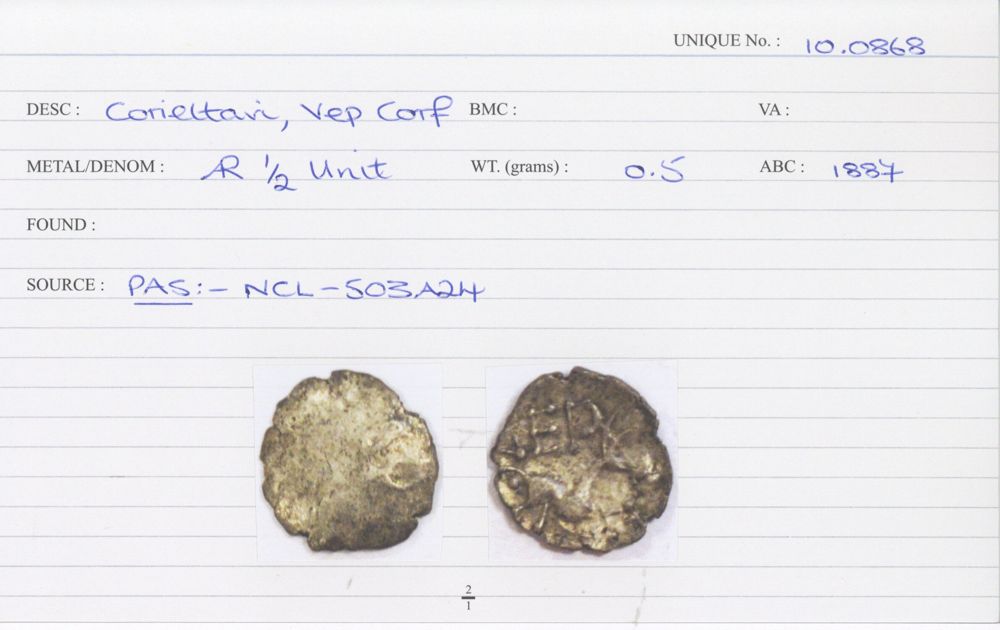 UNIQUE No. : 10.0868
DESC : Corieltavi, Vep Corf BMC : VA :
METAL/DENOM : AR 1/2 Unit WT. (grams) : 0.5 ABC : 1887
FOUND :
SOURCE : PAS:- NCL-503A24
EP
2/1